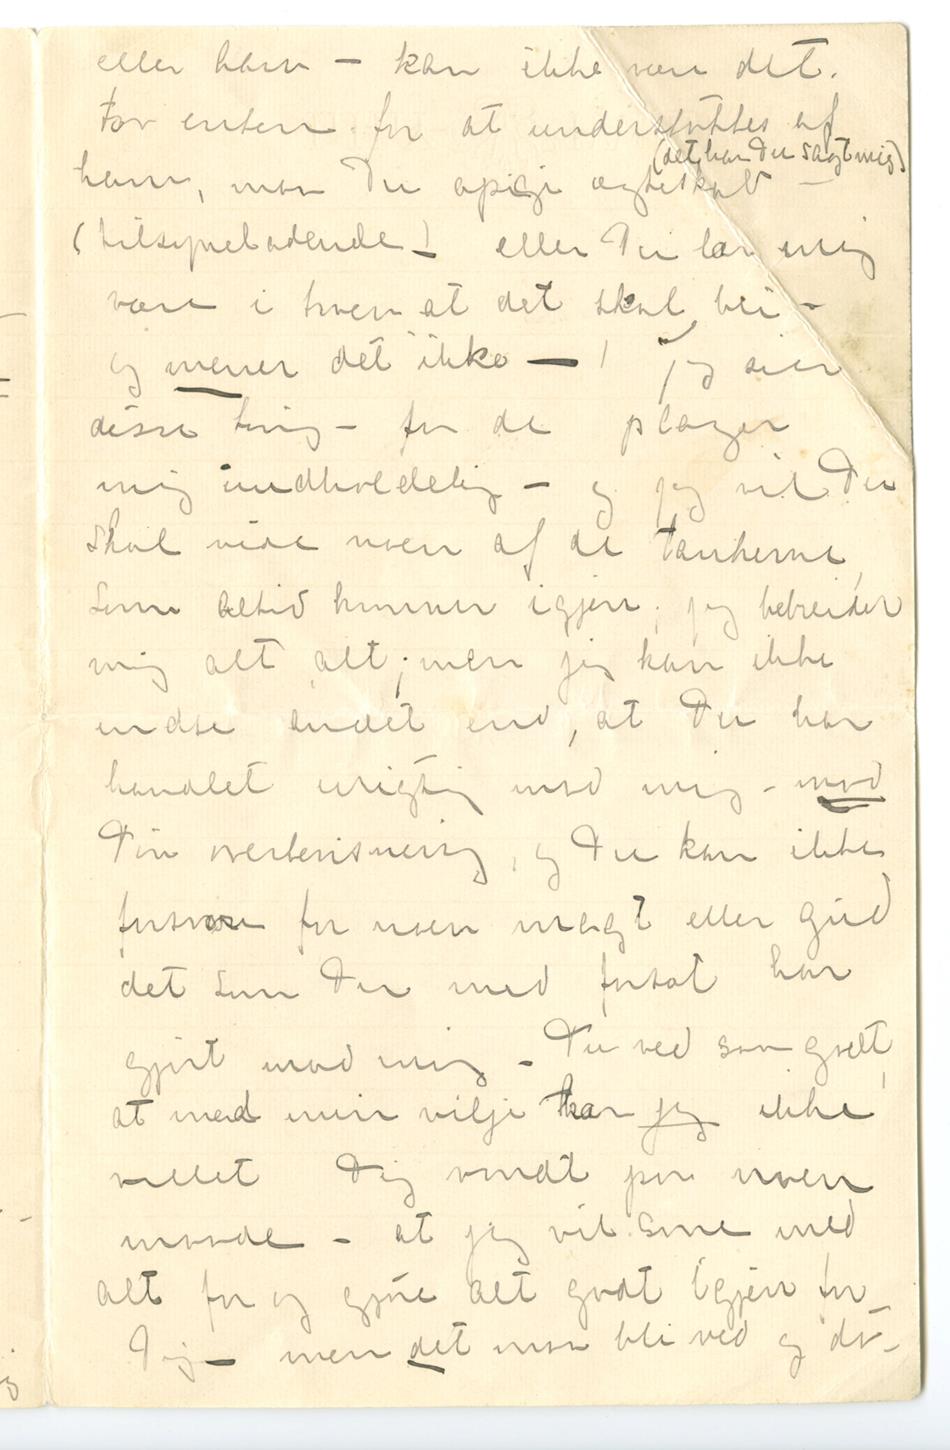 eller ham – kan ikke være det.
For enten for at understøttes af
(det har Du sagt mig)
ham, maa Du opgi ægteskab –
(tilsyneladende) – eller Du lar mig
være i troen at det skal bli –
og mener det ikke – ! Jeg sier
disse ting – for de plager
mig uudholdelig – og jeg vil Du
skal vide noen af de tankerne,
som altid kommer igjen; jeg bebreider
mig alt, alt; men jeg kan ikke
indse andet end, at Du har
handlet urigtig mod mig – mod
Din overbevisning, og Du kan ikke
forsvare for noen magt eller gud
det som Du med forsæt har
gjørt mod mig – Du ved saa godt,
at med min vilje har jeg ikke
voldt Dig ondt paa noen
maade – at jeg vil sone med
alt for og gjøre alt godt igjen for
Dig – men det maa bli ved og då–